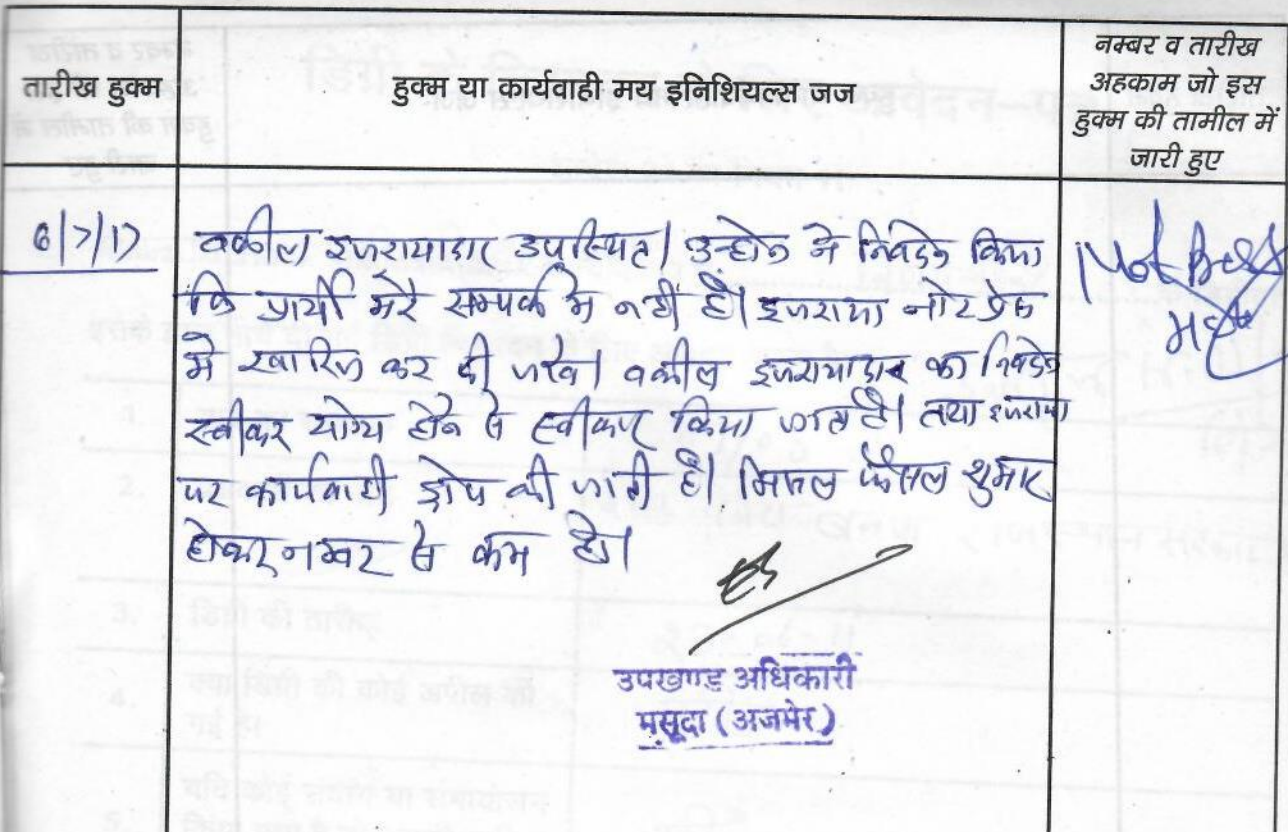 तारीख हुक्म
हुक्म या कार्यवाही मय इनिशियल्स जज
नम्बर व तारीख
अहकाम जो इस
हुक्म की तामील में
जारी हुए
6/7/17
वकील इजरायादार उपस्थित। उन्होने ने निवेदन किया
कि प्रार्थी मेरे सम्पर्क मे नही है। इजराया नोट प्रेस
मे खारिज कर दी जावे। वकील इजरायादार का निवेदन
स्वीकार योग्य होने से स्वीकार किया जाता है। तथा इजराया
पर कार्यवाही ड्रोप की जाती है। मिसल फैसल शुमार
होकर नम्बर से कम हो।
उपखण्ड अधिकारी
मसूदा (अजमेर)
Not